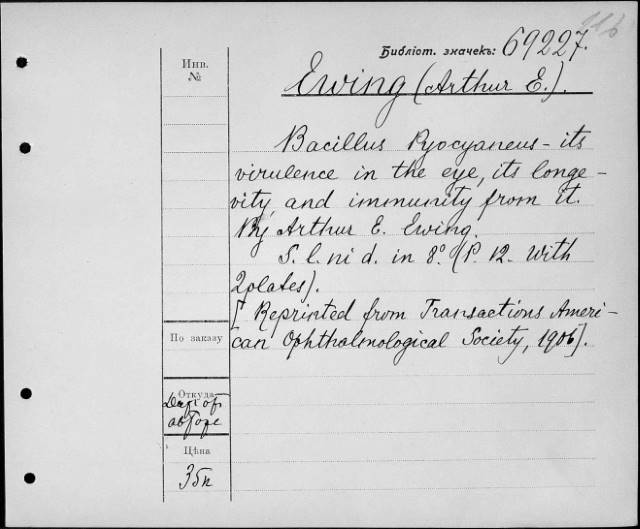 116
Библіот. значекъ: 69227.
Инв.
№
Ewing (Arthur E.).
Bacillus Pyocyaneus – its
virulence in the eye, its longe-
vity and immunity from it.
By Arthur E. Ewing.
S. l. ni d. in 8º. (P. 12. With
2 plates).
[Reprinted from Transactions Ameri-
can Ophthalmological Society, 1906].
По заказу
Откуда
Цѣна